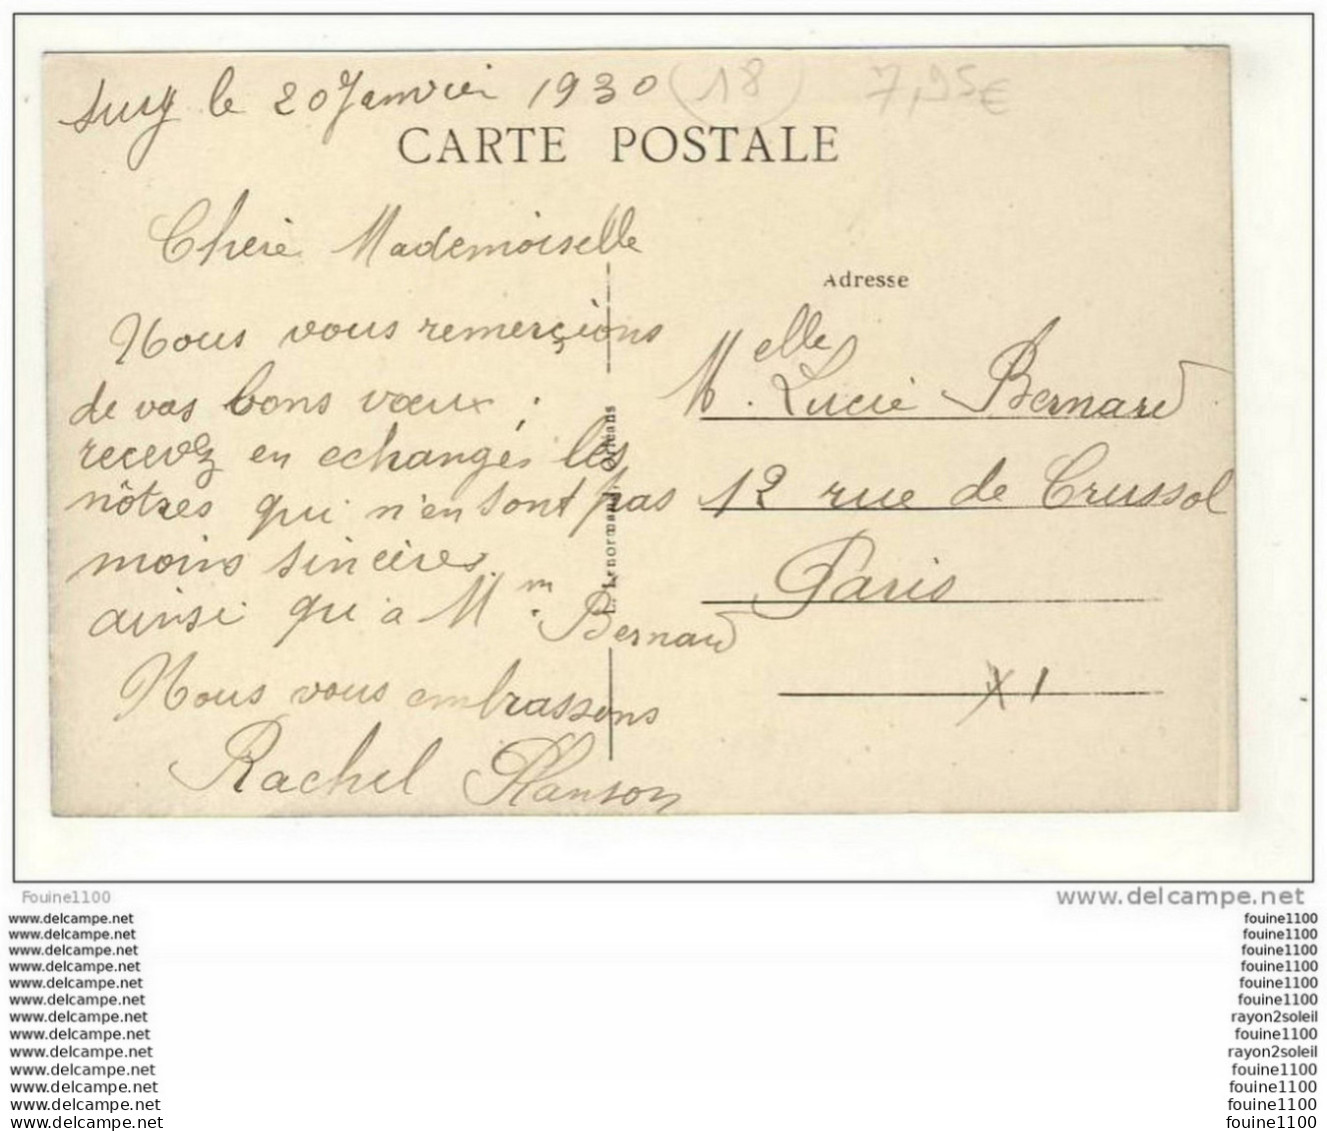 Sury le 20 Janvier 1930 (18) 7,95€
CARTE POSTALE
Cherie Mademoiselle
Nous vous remerçions
de vos bons vœux ;
recevez en echanges les
nôtres qui n'en sont pas
moins sincères
ainsi qu'à Mm Bernard
Nous vous embrassons
Rachel Planson
L. Lenormand, Orléans
Adresse
Melle. Lucie Bernard
12 rue de Crussol
Paris
X 1
Fouine1100
www.delcampe.net
www.delcampe.net
www.delcampe.net
www.delcampe.net
www.delcampe.net
www.delcampe.net
www.delcampe.net
www.delcampe.net
www.delcampe.net
www.delcampe.net
www.delcampe.net
www.delcampe.net
www.delcampe.net
www.delcampe.net
fouine1100
fouine1100
fouine1100
fouine1100
fouine1100
fouine1100
rayon2soleil
fouine1100
rayon2soleil
fouine1100
fouine1100
fouine1100
fouine1100